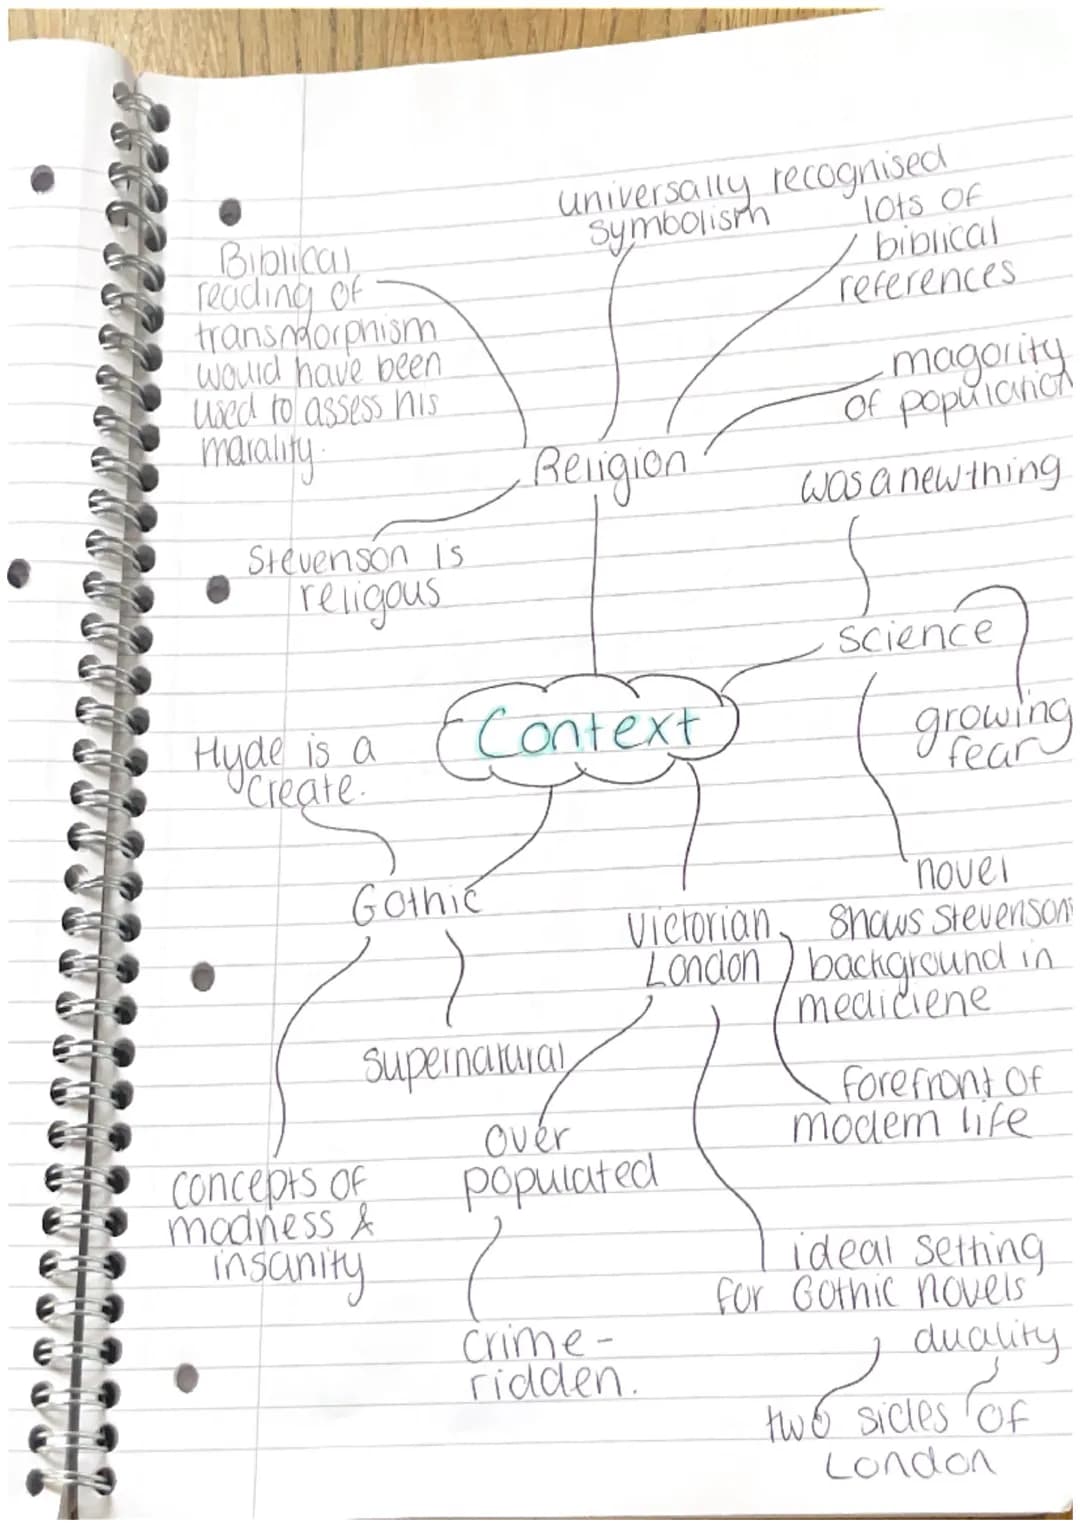 universally recognised
symbolism
lots of
biblical
references
Biblical
reading of
transmorphism
would have been
used to assess his
marality.
magority
of population
Religion
was a new thing
Stevenson is
religous
science
growing
fear
Context
Hyde is a
create.
Gothic
novel
shows Stevensons
background in
mediciene
Victorian
London
supernatural
forefront of
modern life
over
populated
concepts of
madness &
insanity
ideal setting
for Gothic novels
crime-
ridden.
duality
two sides of
London